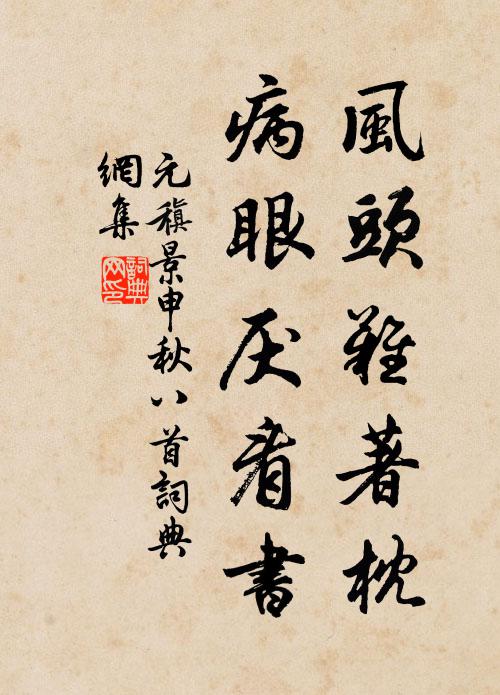 風頭難著枕
病眼厌看書
元稹景申秋八首詞典
網集
詞典
网印